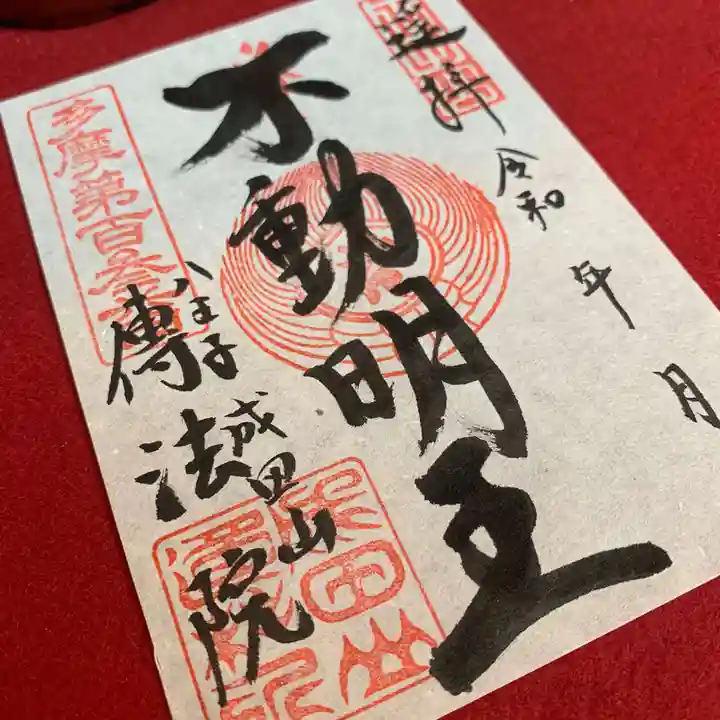 遥拝
令和 年 月
不動明王
八王子 成田山
傳法院
多摩第百番
成田山